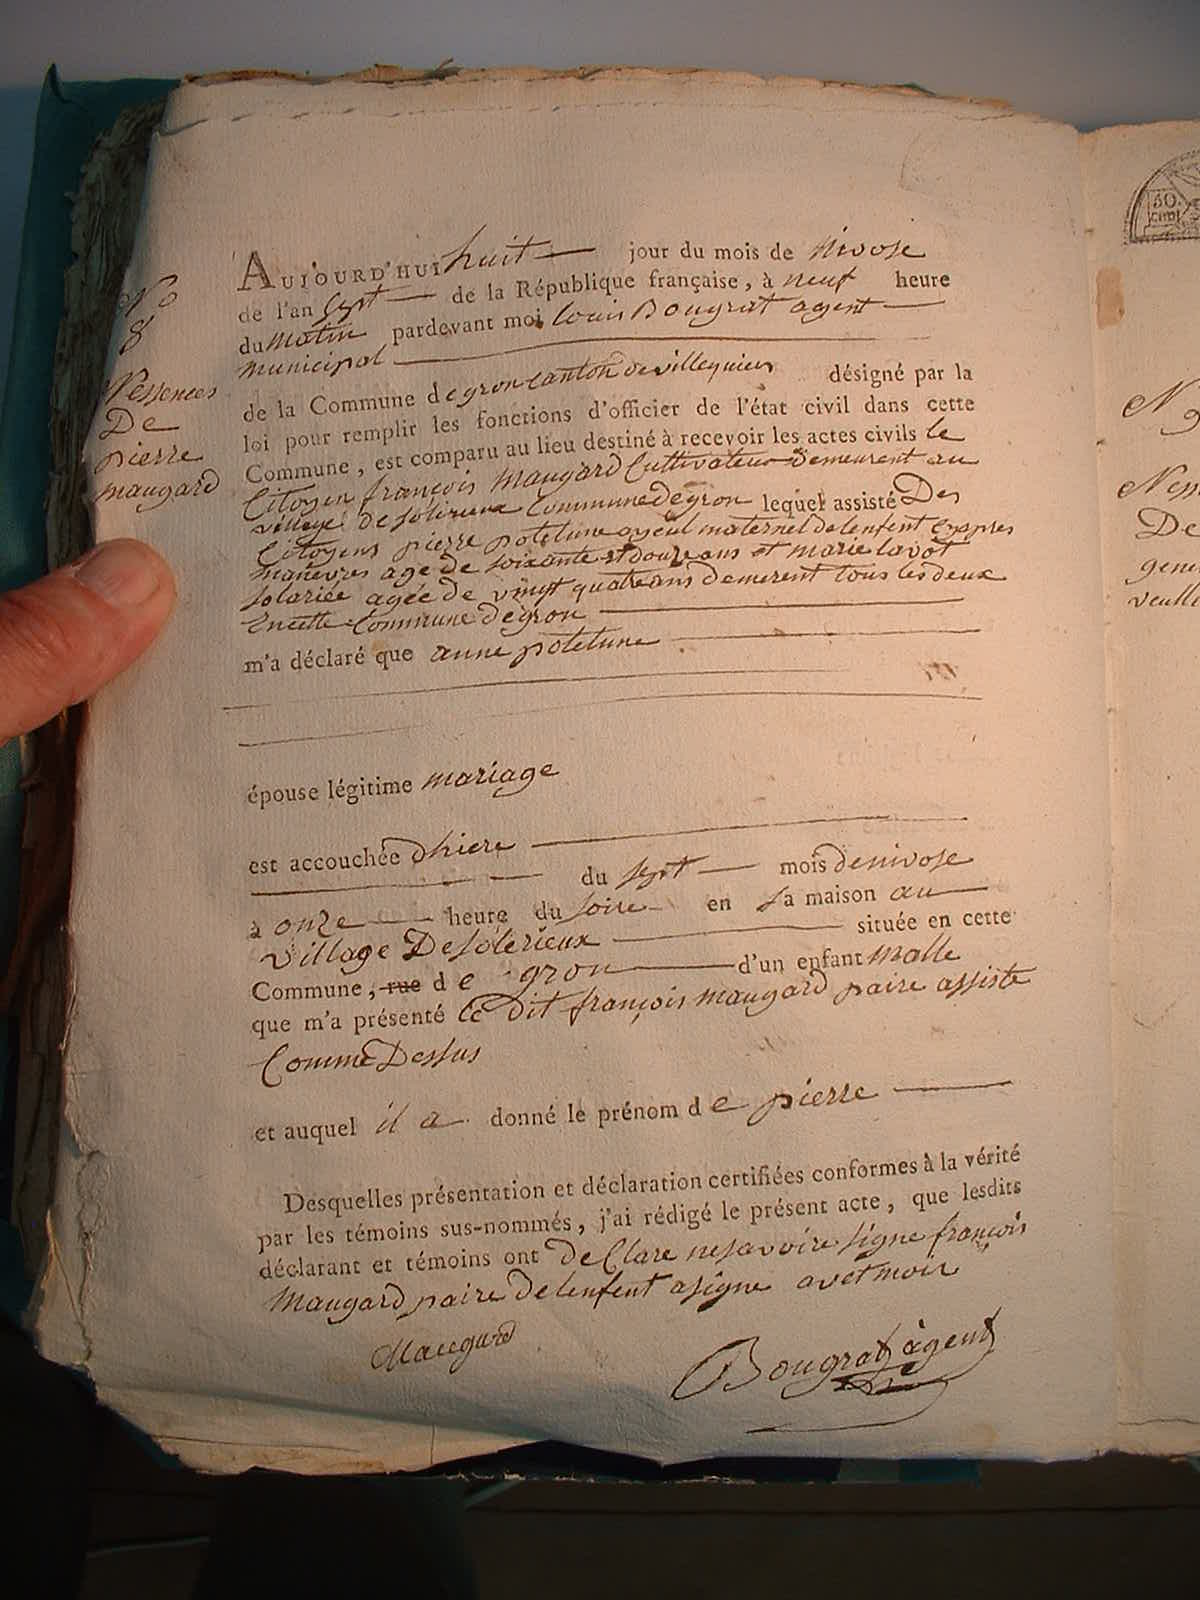 No
8
Nessences
De
pierre
maugard
AUJOURD'HUI huit jour du mois de nivose
de l'an sept de la République française, à neuf heure
du matin pardevant moi louis Bougrat agent
municipal
de la Commune degron canton de villequiers désigné par la
loi pour remplir les fonctions d'officier de l'état civil dans cette
Commune, est comparu au lieu destiné à recevoir les actes civils le
Citoyen françois Maugard Cultivateur Demeurent au
village de solerieux Commune degron lequel assisté Des
Citoyens pierre potelune ayeul maternel de lenfent
manevres age de soixante et douze ans et marie lavot
solariée agée de vingt quatre ans demerent tous les deux
Encette Commune degron
m'a déclaré que anne potelune
épouse légitime mariage
est accouchée Dhiere
du sept mois denivose
à onze heure du soire en sa maison au
village De solerieux située en cette
Commune, rue de gron d'un enfant malle
que m'a présenté le Dit françois maugard paire assiste
Comme Dessus
et auquel il a donné le prénom de pierre
Desquelles présentation et déclaration certifiées conformes à la vérité
par les témoins sus-nommés, j'ai rédigé le présent acte, que lesdits
déclarant et témoins ont De Clare nesavoire signe françois
Maugard paire De lenfent asigne avet moir
Maugard
Bougrat agent
50.
CENT
N 9
Ness
De
gene
veulle